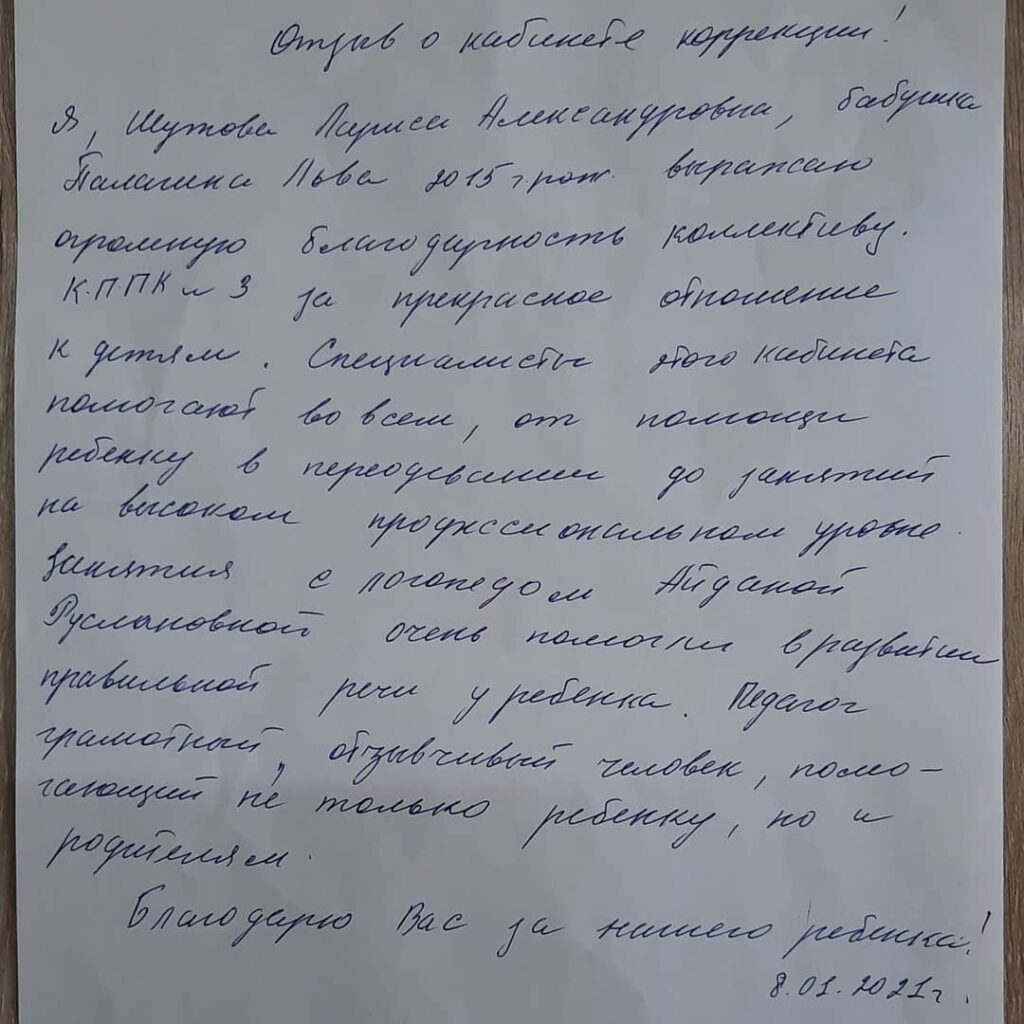 Отзыв о кабинете коррекции!
Я, Шутова Лариса Александровна, бабушка
Палагина Льва 2015 г.рож. выражаю
огромную благодарность коллективу.
К.П.ПК и 3 за прекрасное отношение
к детям. Специалисты этого кабинета
помогают во всем, от помощи
ребенку в переодевании до занятий
на высоком профессиональном уровне.
Занятия с логопедом Айданой
Руслановной очень помогли в развитии
правильной речи у ребенка. Педагог
грамотный, отзывчивый человек, помо-
гающий не только ребенку, но и
родителям.
Благодарю Вас за нашего ребенка!
8.01.2021г.